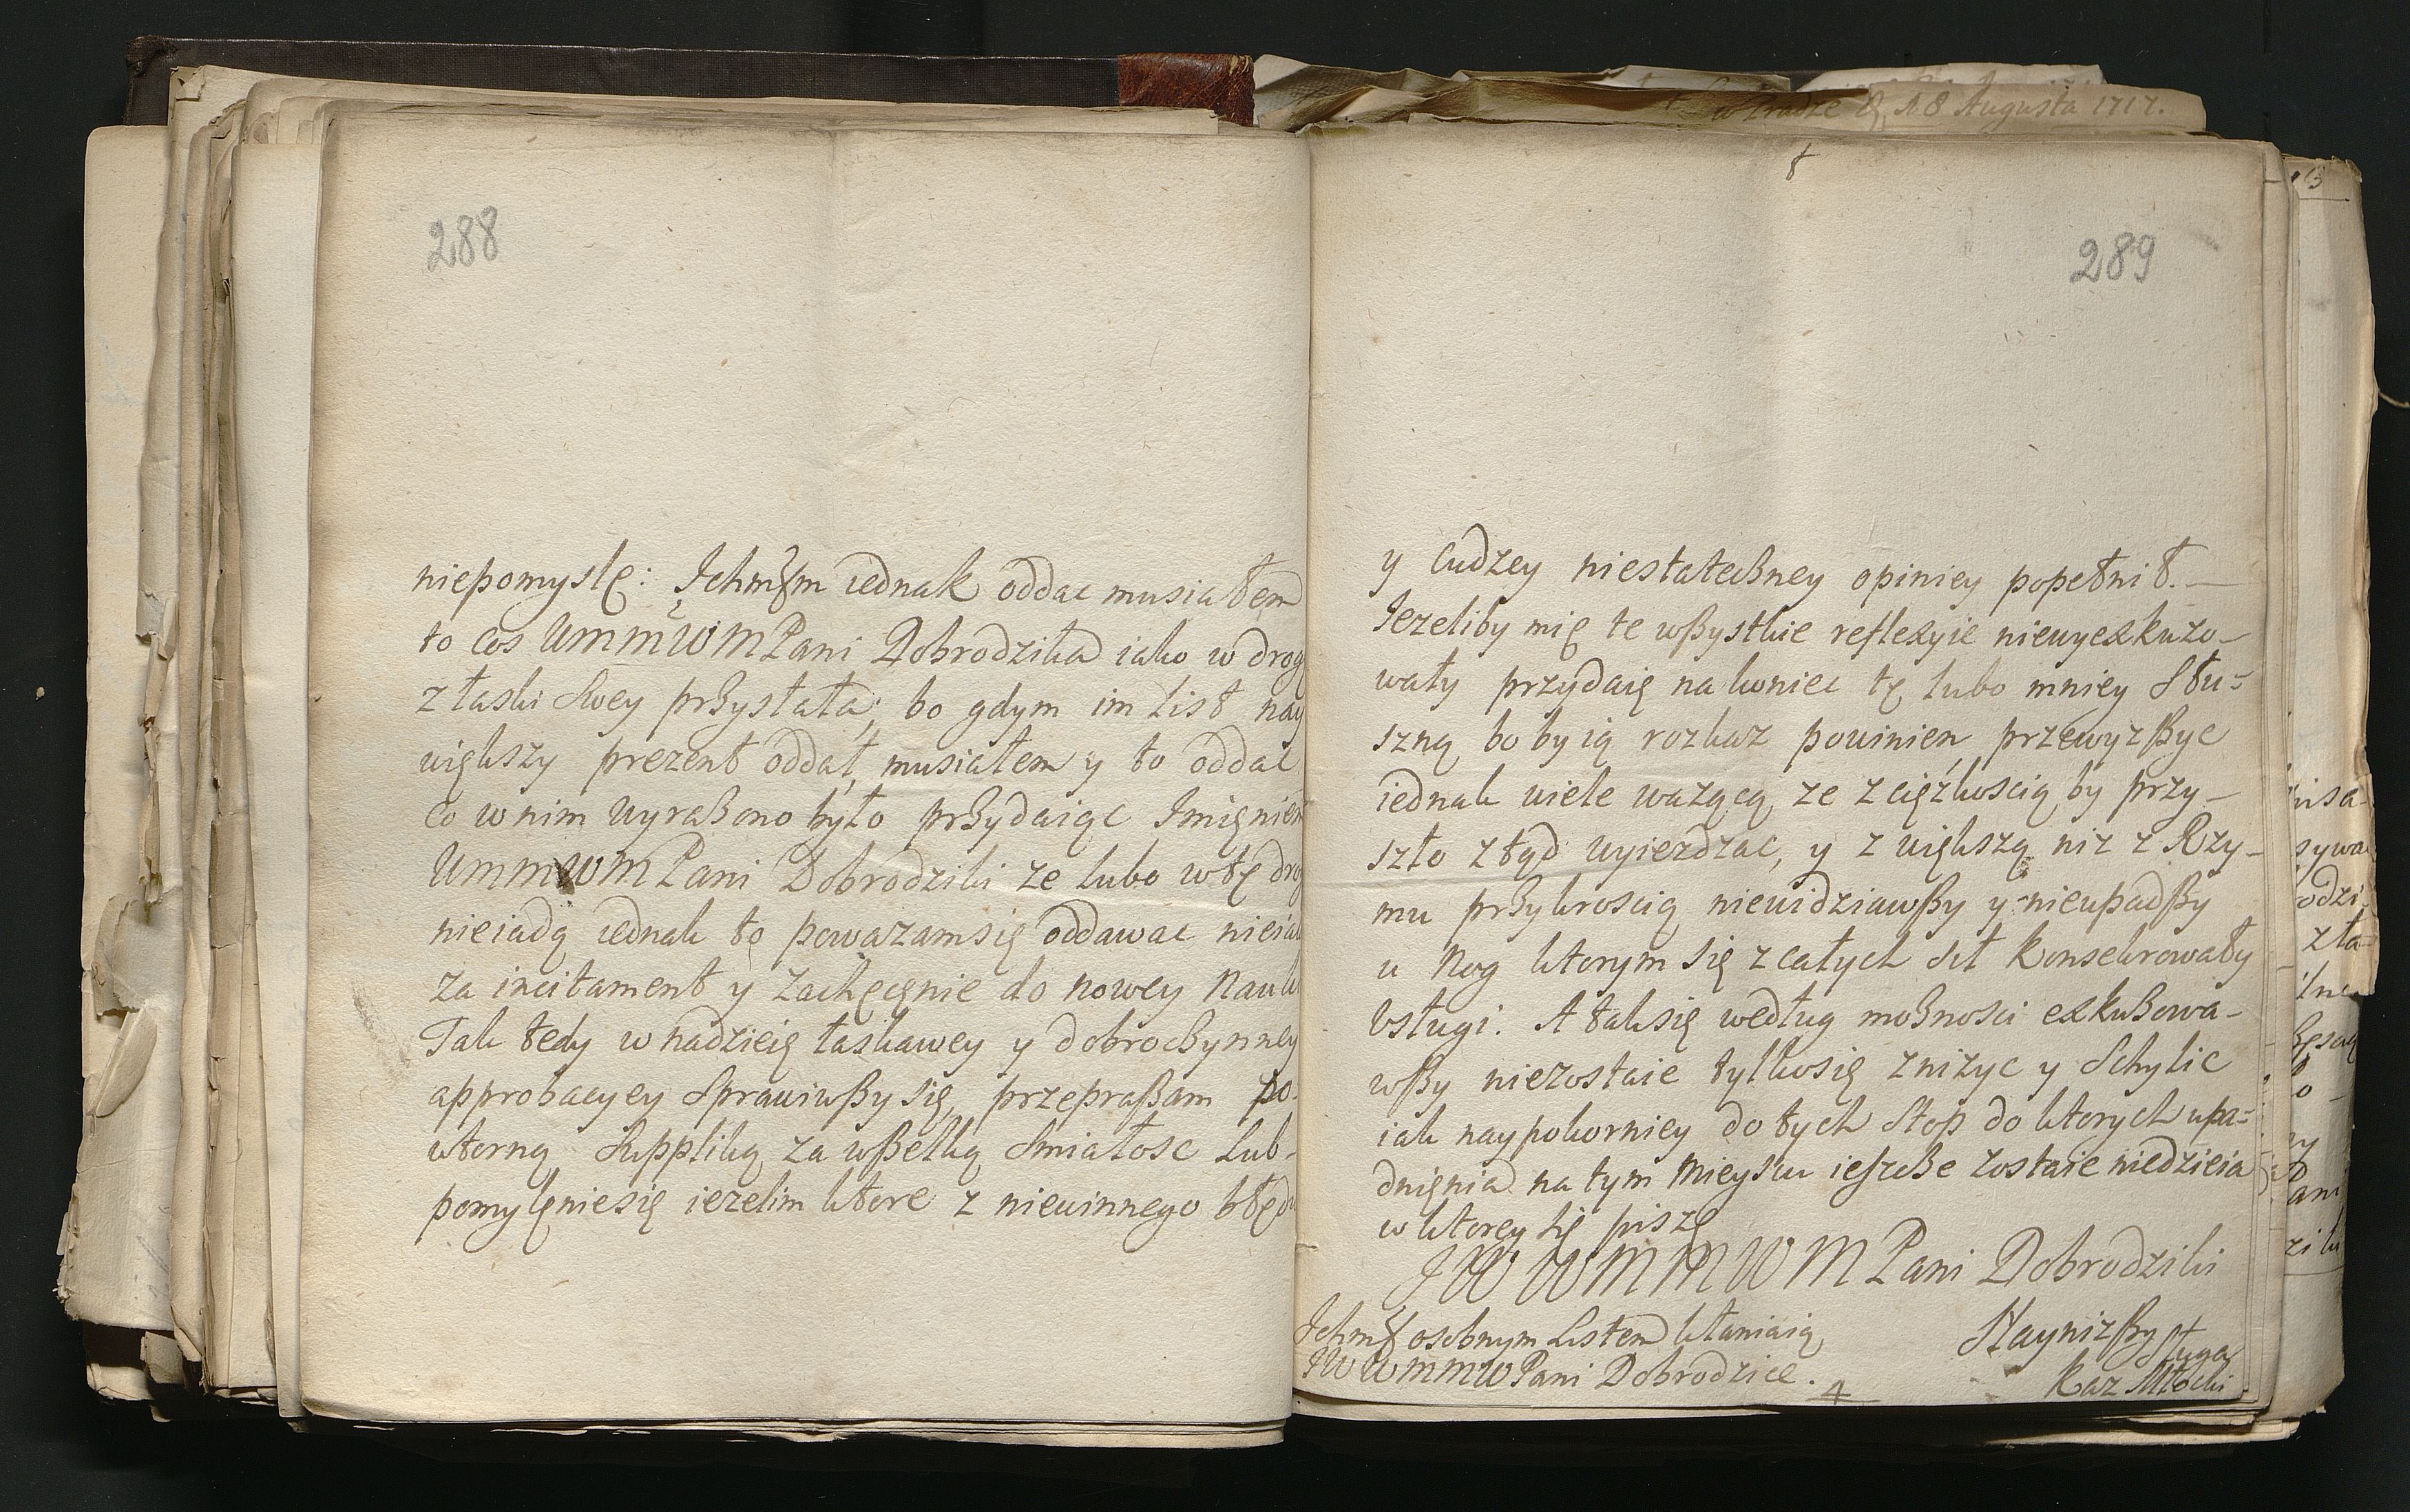 w Pradze d. 18 Augusta 1717.
288
niepomyslę: Ichmściom iednak oddac musiałem
to cos UMMWMPani Dobrodzika iako w drog
z łaski Swey przysłała, bo gdym im list nay
większy prezent oddał, musiałem y to oddac
co w nim wyrażono było przydaiąc Imięniem
UMMWMPani Dobrodziki ze lubo w tę drog
nieiadą iednak tę poważamsię oddawac nieiak
za incitament y zachęcęnie do nowey Nauki
Tak tedy w nadzieię łaskawey y dobroczynney
approbacyey Sprawiwszy się, przepraszam po-
wtorną Suppliką za wszelką Smiałosc lub
pomylęniesię iezelim ktore z niewinnego błędu
289
y Cudzey niestateczney opiniey popełnił.
Iezeliby mię te wszystkie reflexyie niewyexkuzo-
wały przydaię na koniec tę lubo mniey Słu=
szną bo by ią rozkaz powinien przewyzszyc
iednak wiele ważącą, ze z cięźkoscią by przy-
szło z tąd wyiezdzac, y z większą niz z Rzy-
mu przykroscią niewidziawszy y nieupadszy
u Nog ktorym się z całych Sił konsekrowały
Usługi. A taksię według możnosci exkuzowa-
wszy niezostaie tylkosię znizyc y Schylic
iak naypokorniey do tych Stop do ktorych upa=
dnięnia na tym Mieyscu ieszcze zostaie niedzieia
w ktorey się piszę
JWWMMWMPani Dobrodziki
Nayniższy Sługa
Kaz Młocki
Ichmść osobnym Listem kłaniaią
JWWMMWPani Dobrodzice.
4